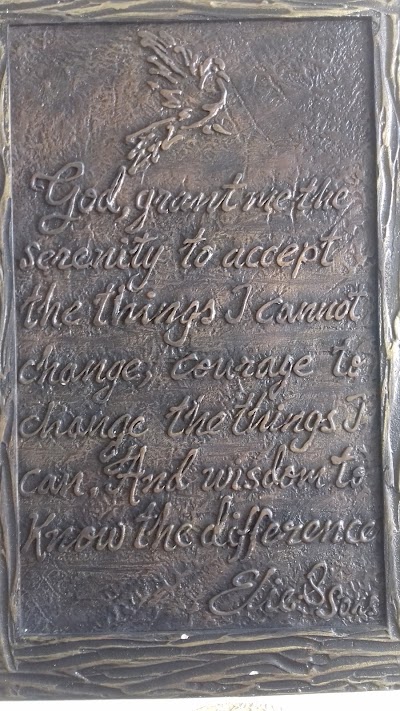 God, grant me the
serenity to accept
the things I cannot
change; courage to
change the things I
can, And wisdom to
Know the difference